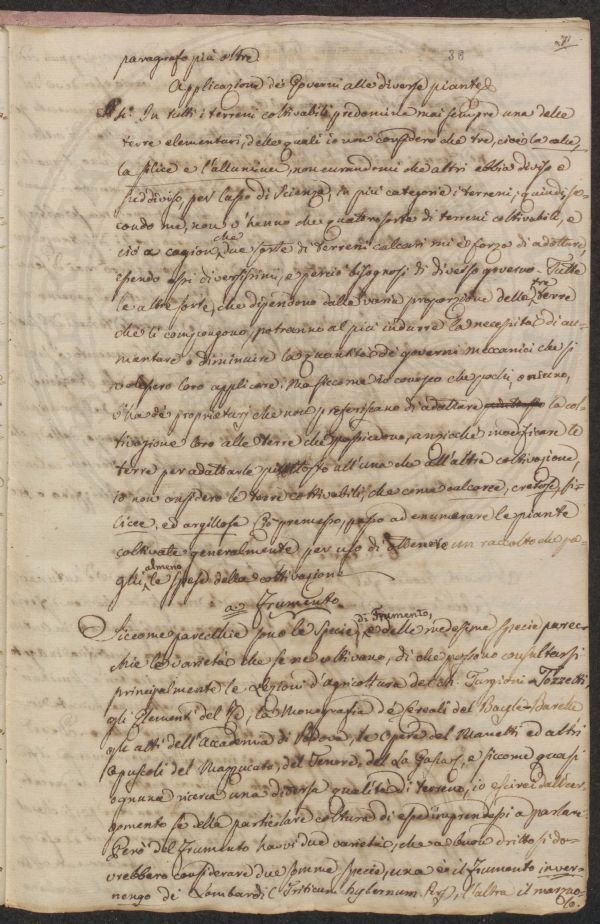 38
paragrafo più oltre
Applicazione dei Governi alle diverse piante
In tutti i terreni coltivabili predomina mai sempre una delle
terre elementari, delle quali io non considero che tre, cioè la calce,
la silice e l'allumine, non curandomi che altri abbia diviso e
suddiviso, per lusso di Scienza, in più categorie i terreni; quindi, se-
condo me, non v'hanno che quattro sorte di terreni coltivabili, e
ciò a cagion che due sorte di terreni calcari mi è forza di adottare,
essendo assai diversissimi, e perciò bisognosi di diverso governo. Tutte
le altre sorte, che dipendono dalla varia proporzione delle tre terre
che li compongono, potranno al più indurre la necessità di au-
mentare o diminuire la quantità de' governi meccanici che si
volessero loro applicare. Ma siccome io conosco che pochi, o niuno,
v'ha dei proprietarj che non preferiscano di adattare la col-
tivazione loro alle terre che posseggono, anziché modificare le
terre per adattarle piuttosto all'una che all'altra coltivazione,
io non considero le terre coltivabili, che come calcaree, cretose, si-
licee, ed argillose. Ciò premesso, passo ad enumerare le piante
coltivate generalmente per uso di ottenere un raccolto che pa-
ghi almeno le spese della coltivazione
a. Frumento
Siccome parecchie sono le specie di Frumento, e delle medesime specie parec-
chie le varietà che se ne coltivano, di che possono consultarsi
principalmente le Lezioni d'agricoltura del Targioni Tozzetti,
gli Elementi del Re, la Monografia de' Cereali del Bayle-Barelle
gli atti dell'Accademia di Padova, le Opere del Manetti ed altri
Opuscoli del Mazzucato, del Tenore, del La Gasca, e siccome quasi
ognuna ricerca una diversa qualità di terreno, io escirei dall'ar-
gomento se della particolare coltura di esse imprendessi a parlare.
Però del Frumento havvi due varietà, che a buon dritto si do-
vrebbero considerare due somme specie, una è il Frumento inver-
nengo de' Lombardi (Triticum hybernum), l'altra il marzuo-
lo.